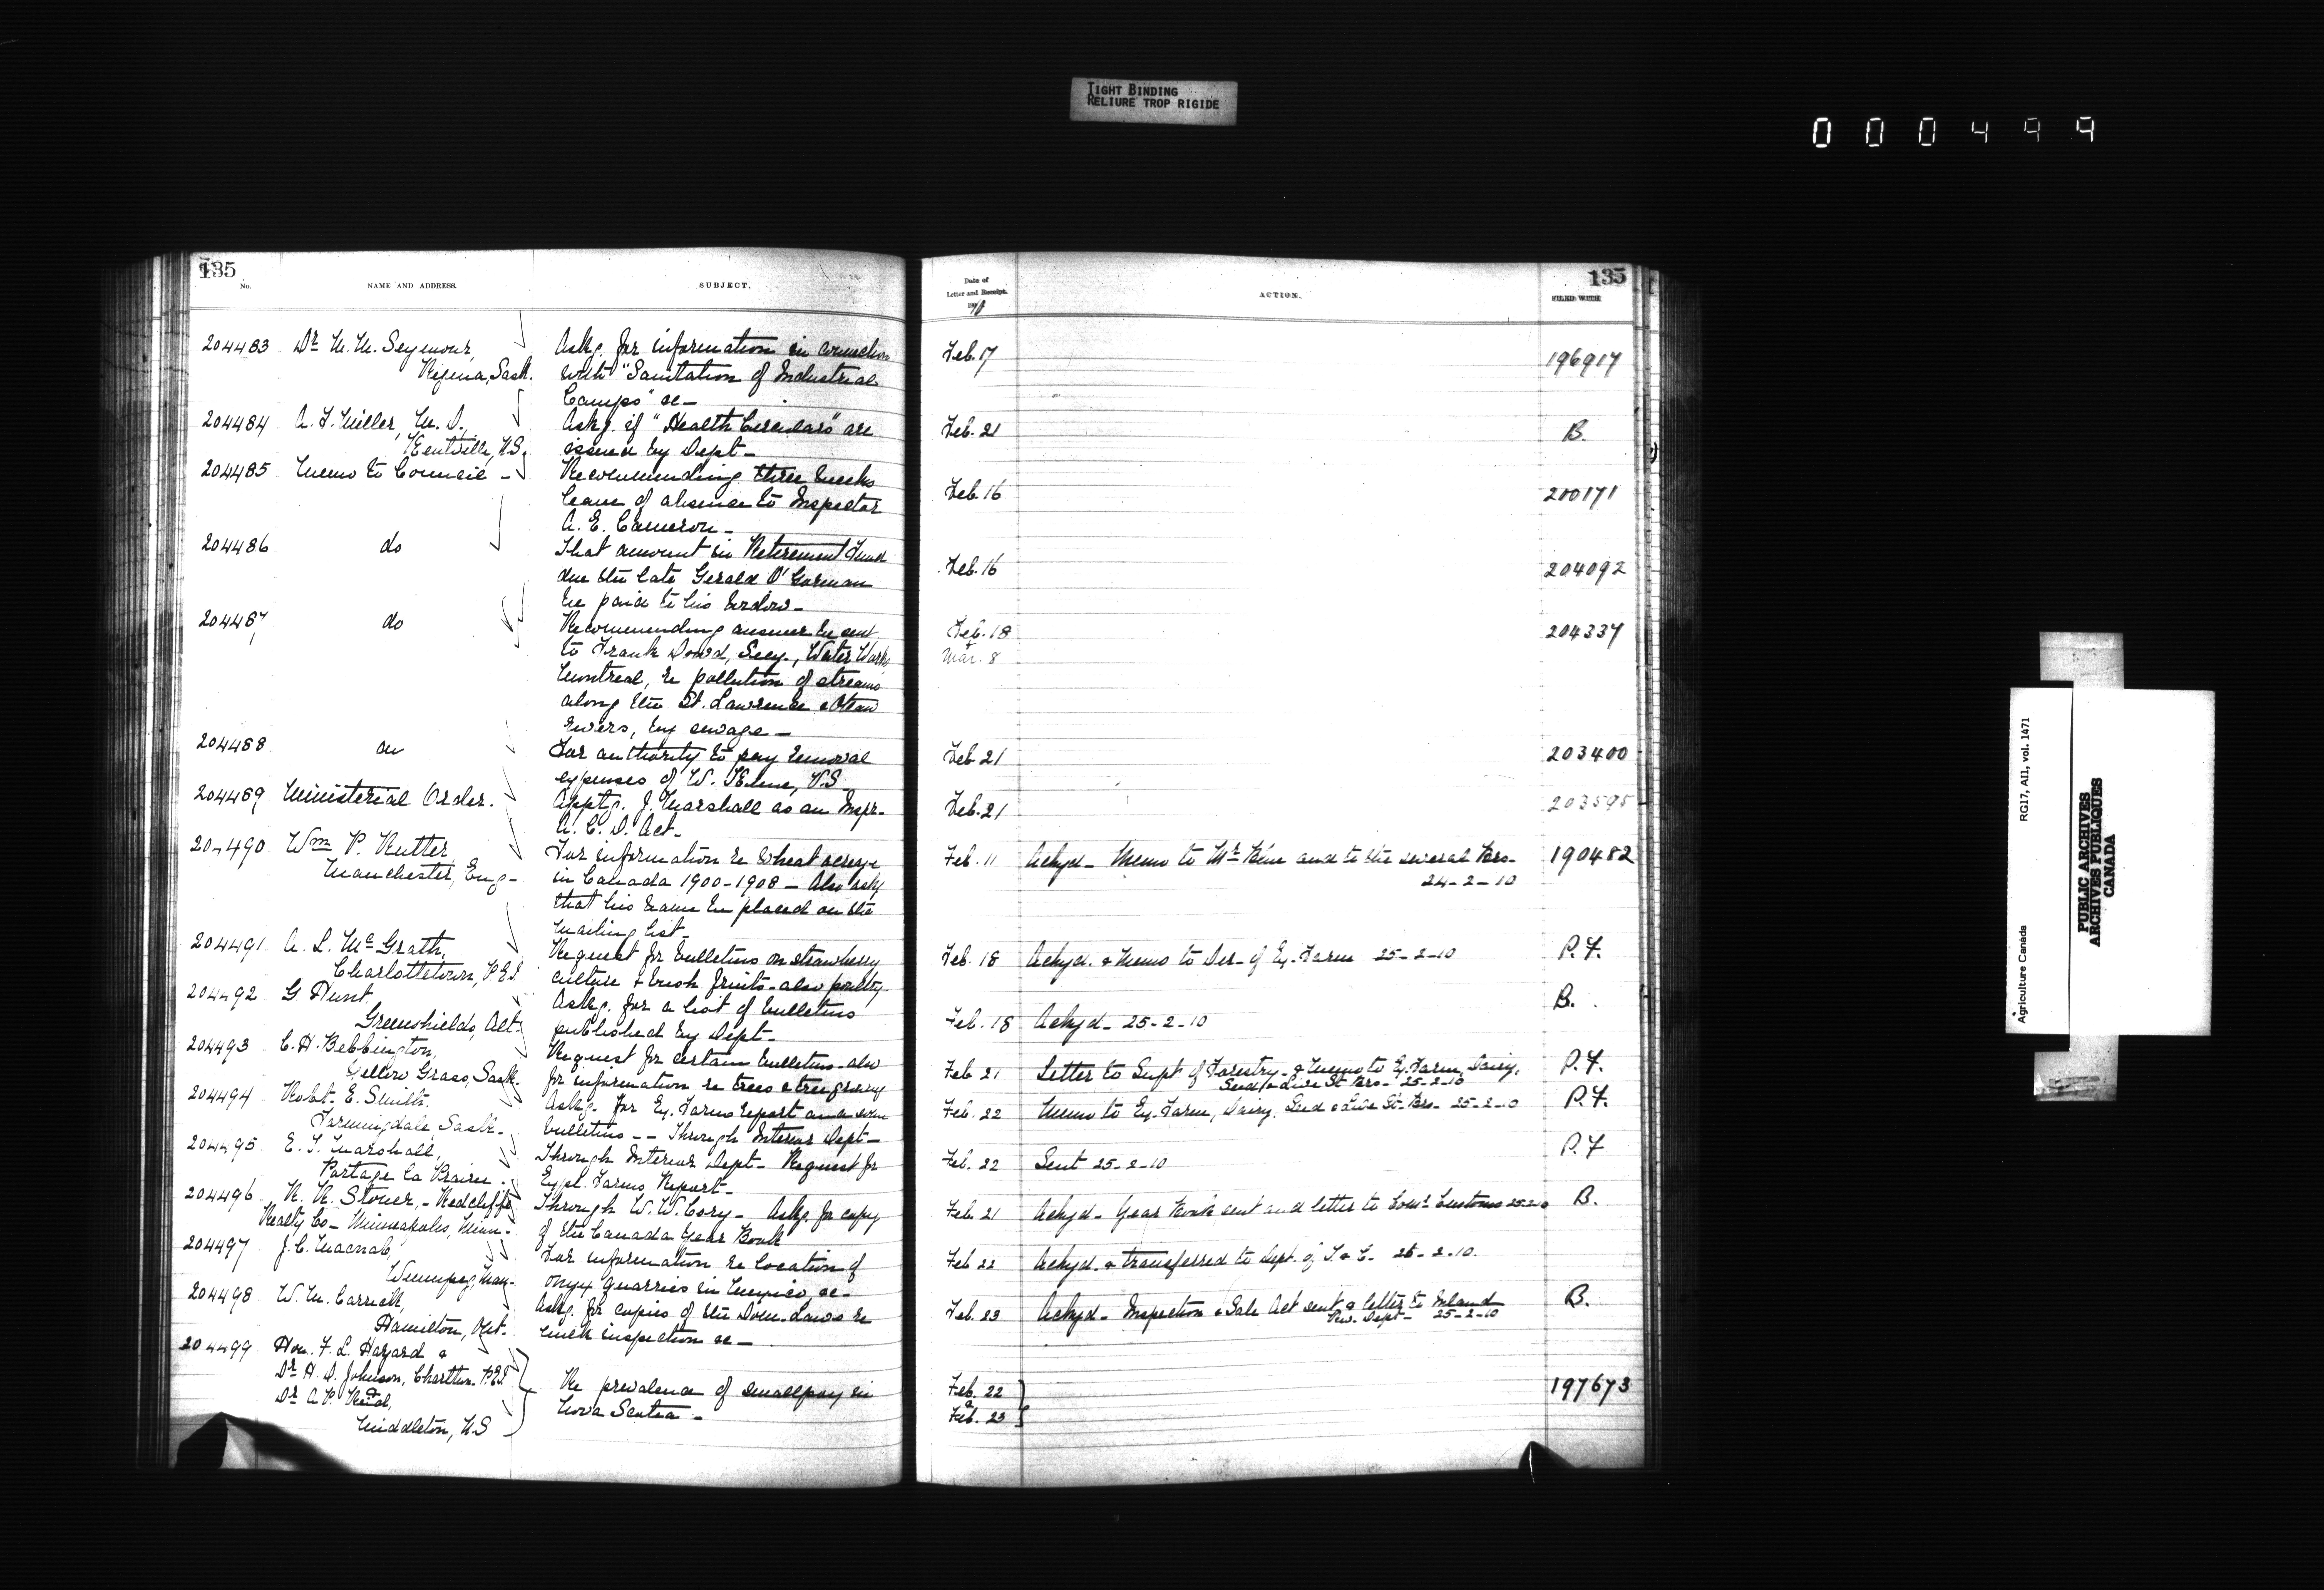 TIGHT BINDING
RELIURE TROP RIGIDE
000499
135
No. NAME AND ADDRESS. SUBJECT.
204483 Dr M. M. Seymour, Askg. for information in connection
Regina, Sask. with "Sanitation of Industrial
Camps" &c—
204484 A. F. Miller, M. D., Askg. if "Health Circulars" are
Kentville, N.S. issued by Dept—
204485 Memo to Council — Recommending three weeks
leave of absence to Inspector
A. E. Cameron—
204486 do That amount in Retirement Fund
due the late Gerald O'Gorman
be paid to his widow—
204487 do Recommending answer be sent
to Frank Dowd, Secy., Water Works
Montreal, re pollution of streams
along the St. Lawrence & Ottaw
rivers, by sewage—
204488 do For authority to pay removal
expenses of W. , V.S
204489 Ministerial Order. Apptg. J. Marshall as an Inspr.
A. C. D. Act—
204490 Wm P. Rutter For information re wheat acreage
Manchester, Eng— in Canada 1900-1908 — Also asks
that his name be placed on the
mailing list—
204491 A. L. McGrath, Request for bulletins on strawberry
Charlottetown, P.E.I. culture & bush fruits—also poultry
204492 G. Hunt Askg. for a list of bulletins
Greenshields, Alt. published by Dept—
204493 C. H. Bebbington, Request for certain bulletins—also
Yellow Grass, Sask. for information re trees & tree growing
204494 Robt. E. Smith, Askg. for Ex. Farms report and some
Farmingdale, Sask— bulletins—— Through Interior Dept—
204495 E. T. Marshall, Through Interior Dept— Request for
Portage la Prairie. Expl. Farms Report—
204496 R. R. Stoner, — Redcliffe Through W. W. Cory— Askg. for copy
Realty Co— Minneapolis, Minn— of the Canada Year Book
204497 J. C. Macnab, For information re location of
Winnipeg, Man— onyx quarries in Mexico, &c—
204498 W. M. Carrick, Askg. for copies of the Dom. Laws re
Hamilton, Ont. milk inspection &c—
204499 Hon. F. L. Hazard &
Dr H. D. Johnson, Chartton. P.E.I. Re prevalence of smallpox in
Dr A. P. Reid, Nova Scotia—
Middleton, N.S
135
Date of
Letter and Receipt.
1910
ACTION.
FILED WITH
Feb. 17 196917
Feb. 21 B.
Feb. 16 200171
Feb. 16 204092
Feb. 18 204337
&
Mar. 8
Feb. 21 203400
Feb. 21 203595
Feb. 11 Ackgd— Memo to Mr Blue and to the several Brs— 190482
24-2-10
Feb. 18 Ackgd. & Memo to Dir— of Ex. Farm 25-2-10 P.F.
Feb. 18 Ackgd— 25-2-10 B.
Feb 21 Letter to Supt of Forestry— & Memo to Ex. Farm, Dairy, P.F.
Seed & Live St Brs— 25-2-10
Feb. 22 Memo to Ex. Farm, Dairy, Seed & Live St— Brs— 25-2-10 P.F.
Feb. 22 Sent 25-2-10 P.F
Feb. 21 Ackgd— Year Book sent and letter to Comr Customs 25-2-10 B.
Feb 22 Ackgd. & transferred to Dept. of T. & C— 25-2-10.
Feb. 23 Ackgd— Inspection & Sale Act sent & letter to Inland B.
Rev. Dept— 25-2-10
Feb. 22 197673
&
Feb. 23
Agriculture Canada RG17, AII, vol. 1471
PUBLIC ARCHIVES
ARCHIVES PUBLIQUES
CANADA